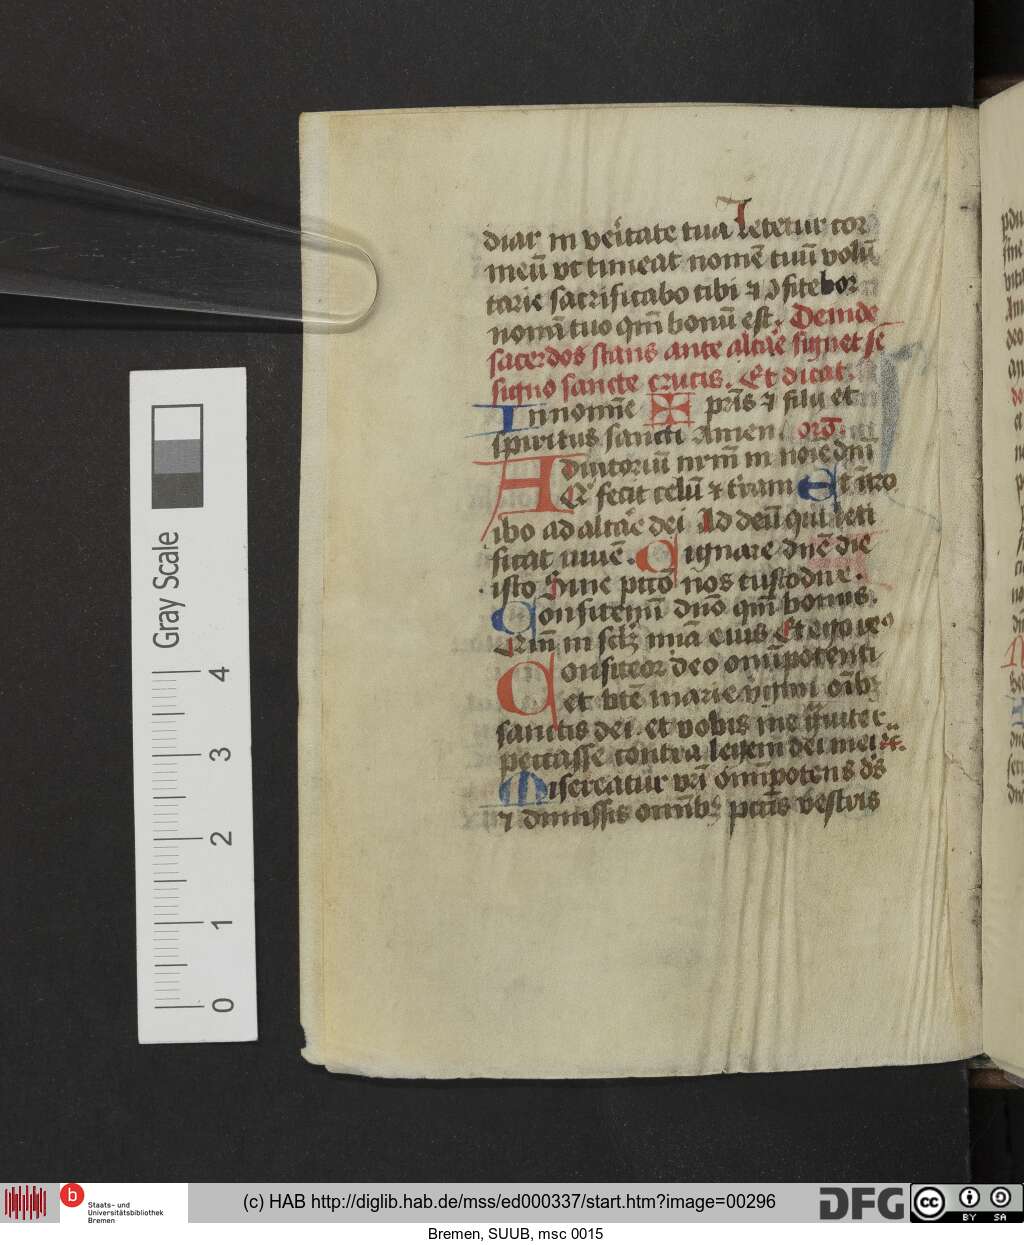 diar in veritate tua Letetur cor
meū vt timeat nomē tuū volū
tarie sacrificabo tibi ⁊ ꝯfitebor
nomī tuo qm̄ bonū est. Deinde
sacerdos stans ante altare signet se
signo sancte crucis. Et dicat.
In nomīe ✠ pris ⁊ filii et
spiritus sancti Amen
Adiutoriū nrm̄ in noīe dnī
Qi fecit celū ⁊ t'ram Et īt'ro
ibo ad altare dei Ad deū qui leti
ficat iuuē. Dignare dnē die
isto Sine pctō nos custodire.
Confitemī dnō qm̄ bonus.
Qm̄ in sclꝫ mīa eius Et ego ve
Confiteor deo omīpotenti
et btē marie virginī oībꝫ
sanctis dei et vobis me gͣuiter
peccasse contra legem dei mei
Misereatur vrī omīpotens ds
⁊ dimissis omībꝫ pctīs vestris
Gray Scale
0 1 2 3 4
b Staats- und
Universitätsbibliothek
Bremen
(c) HAB http://diglib.hab.de/mss/ed000337/start.htm?image=00296
DFG
cc BY SA
Bremen, SUUB, msc 0015